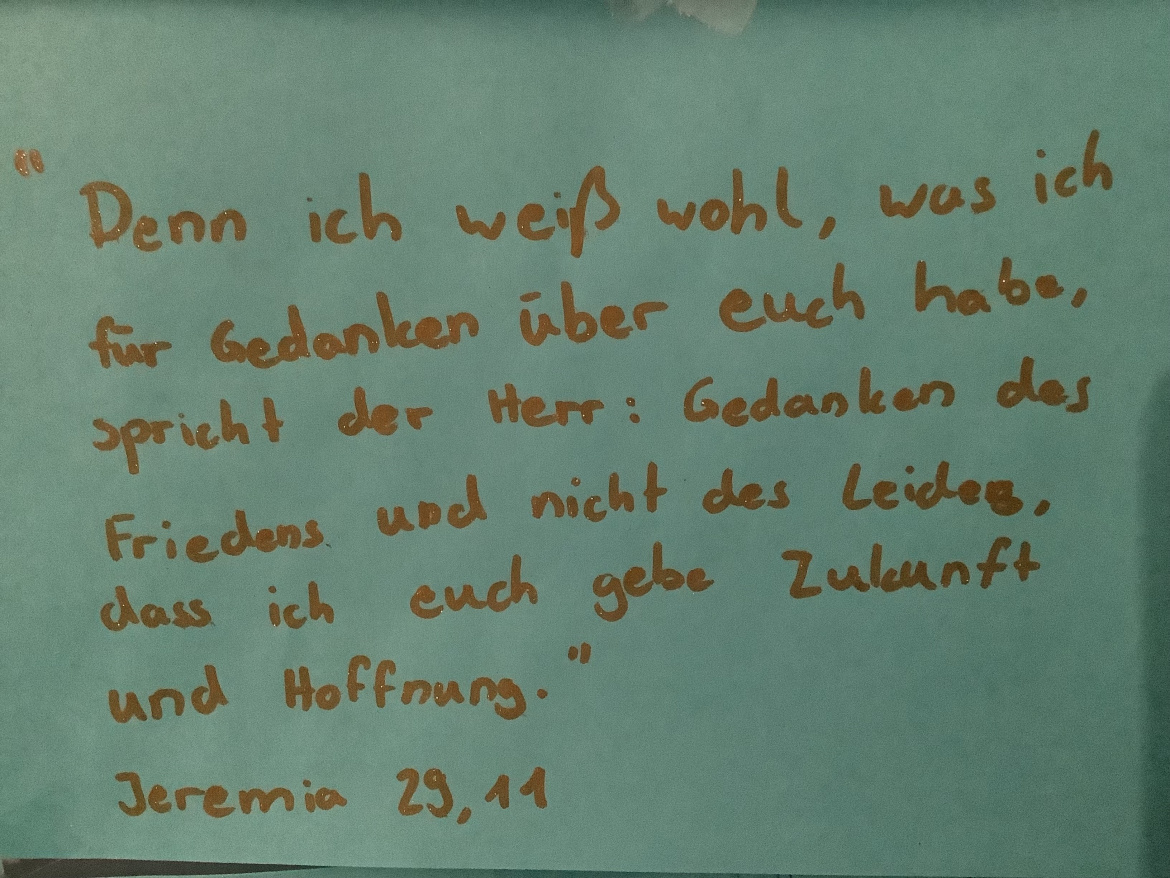 "Denn ich weiß wohl, was ich
für Gedanken über euch habe,
spricht der Herr: Gedanken des
Friedens und nicht des Leides,
dass ich euch gebe Zukunft
und Hoffnung."
Jeremia 29,11